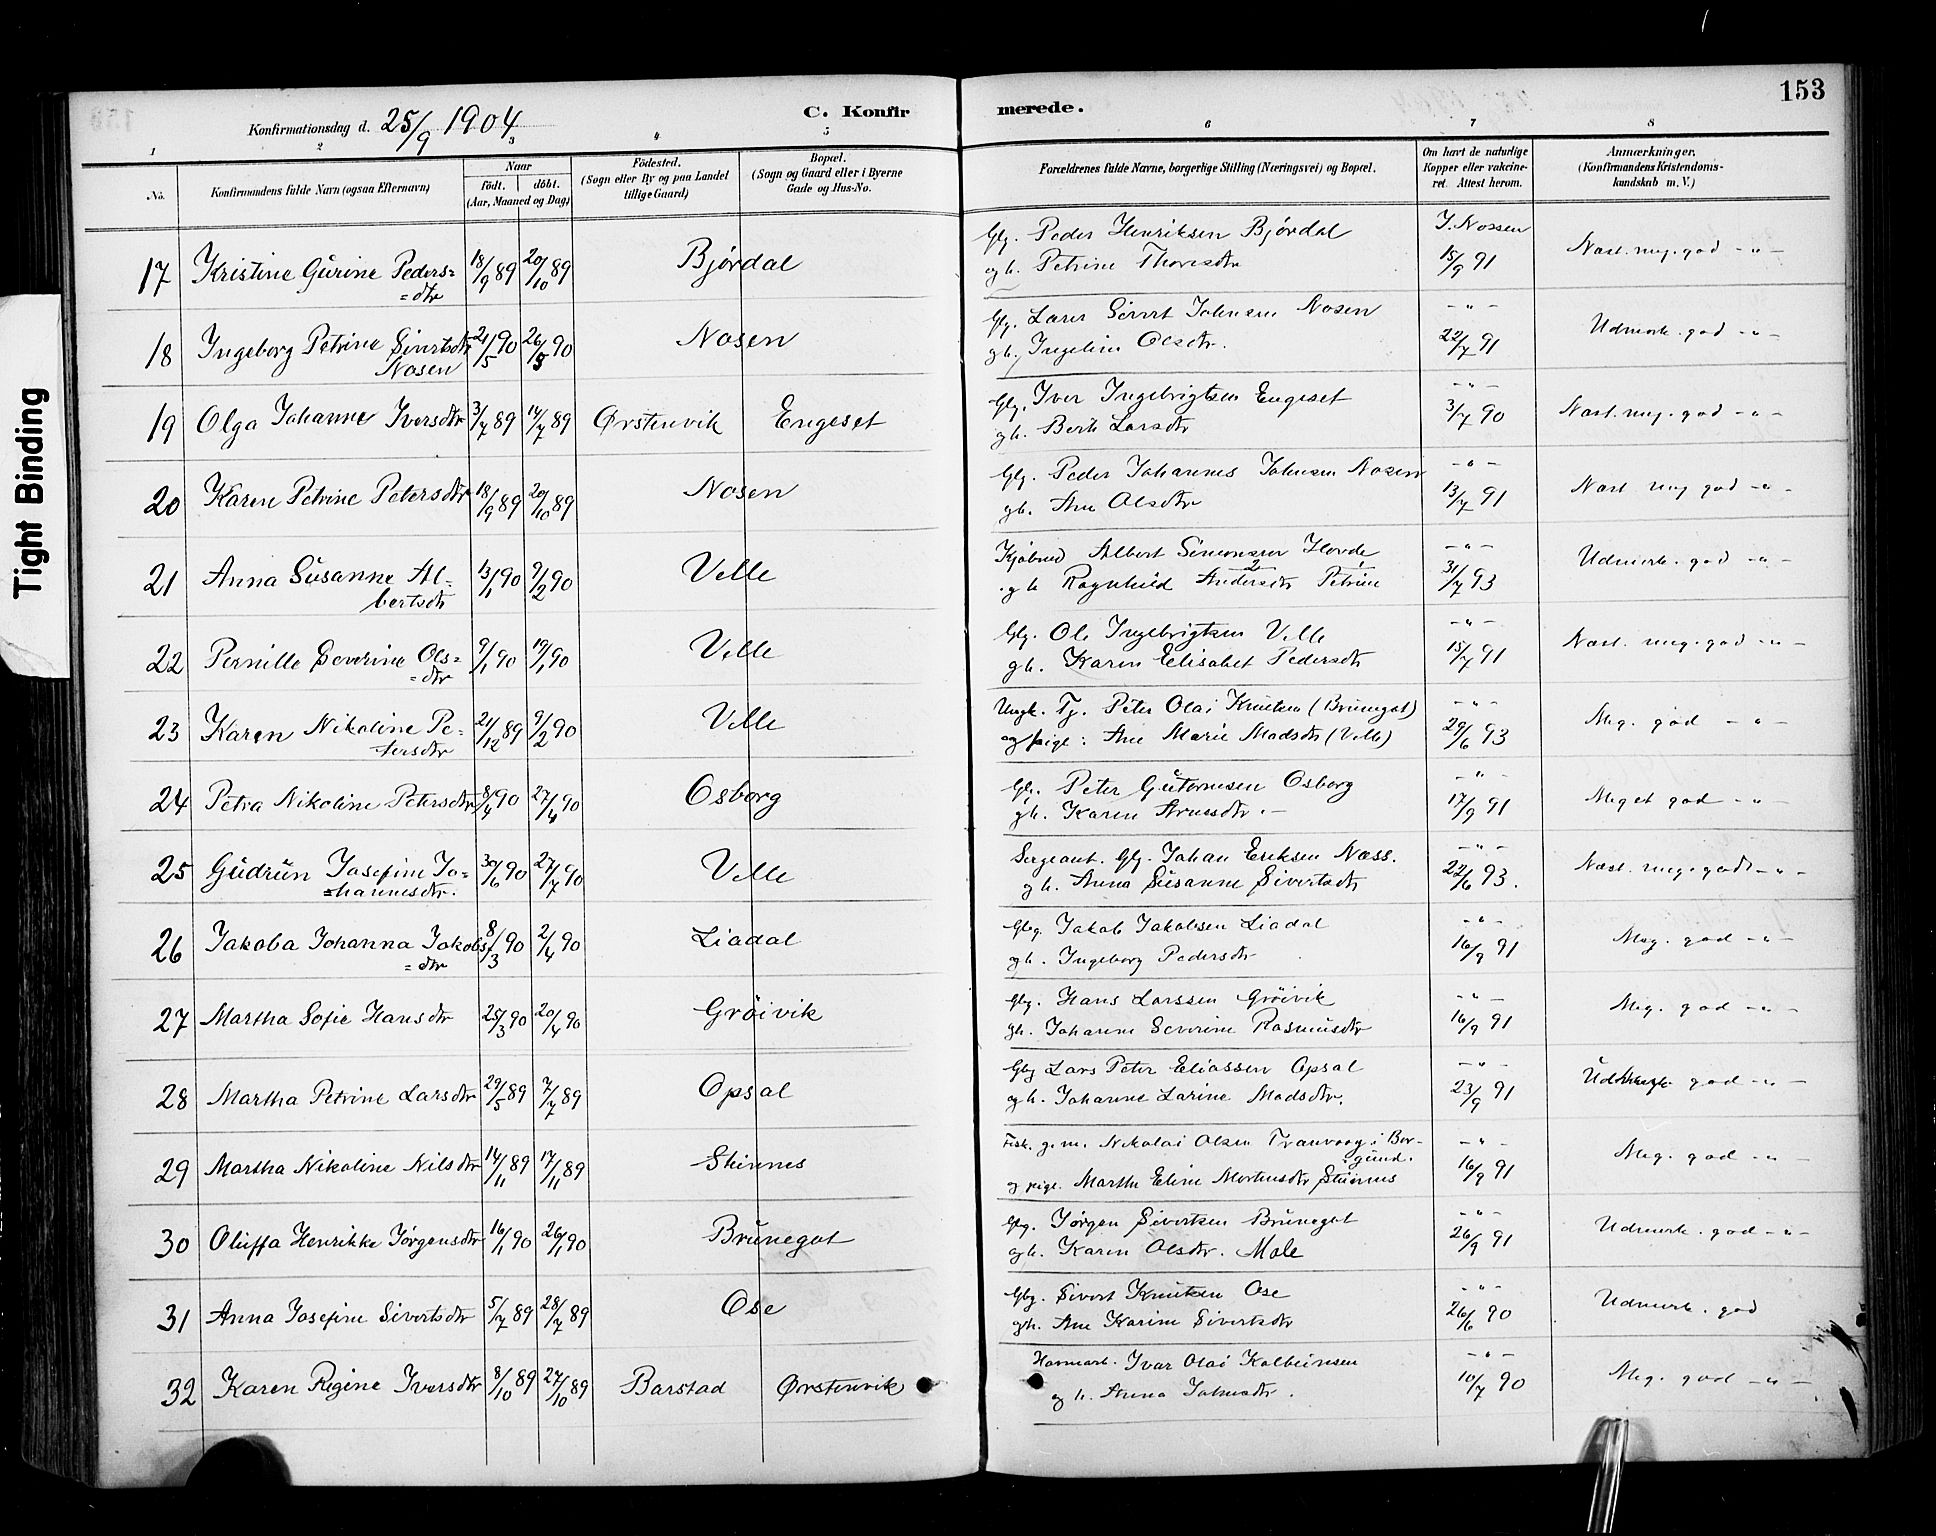 153
Tight Binding
Konfirmationsdag d. 25/9 1904
C. Konfirmerede.
1 2 3 4 5 6 7 8
No. Konfirmandens fulde Navn (ogsaa Efternavn) Naar födt. döbt. (Aar, Maaned og Dag) Födested. (Sogn eller By og paa Landet tillige Gaard) Bopæl. (Sogn og Gaard eller i Byerne Gade og Hus-No. Forældrenes fulde Navne, borgerlige Stilling (Næringsvei) og Bopæl. Om havt de naturlige Kopper eller vakcineret. Attest herom. Anmærkninger. (Konfirmandens Kristendomskundskab m. V.)
17 Kristine Gurine Peders= 18/9 89 20/10 89 Bjørdal Glg. Peder Henriksen Bjørdal J. Nossen Næst. meg. god -"-
=dtr og h. Petrine Thoresdtr 15/9 91
18 Ingeborg Petrine Sivertsdtr 21/5 90 26/5 90 Nosen Glg. Lærer Sivert Johnsen Nosen -"- Udmerk. god -"-
Nosen gh. Ingeline Olsdtr. 22/7 91
19 Olga Johanne Iversdtr 3/7 89 14/7 89 Ørstenvik Engeset Glg. Iver Ingebrigtsen Engeset -"- Næst. meg. god -"-
gh. Berte Larsdtr 3/7 90
20 Karen Petrine Petersdtr 18/9 89 20/10 89 Nosen Glg. Peder Johannes Johnsen Nosen -"- Næst meg god -"-
gh. Ane Olsdtr 13/7 91
21 Anna Susanne Al- 13/1 90 9/2 90 Velle Kjøbmd Albert Simonsen Hovde -"- Udmerk. god -"-
bertsdtr gh Ragnhild Andersdtr Petrine 31/7 93
22 Pernille Severine Ols= 9/1 90 19/1 90 Velle Glg. Ole Ingebrigtsen Velle -"- Næst. meg. god -"-
=dtr gh. Karen Elisabet Pedersdtr 15/7 91
23 Karen Nikoline Pe- 21/12 89 9/2 90 Velle Ungk. Tj. Peter Olai Knutsen (Brunegot) -"- Meg. god -"-
tersdtr og pige: Ane Marie Madsdtr (Velle) 29/6 93
24 Petra Nikoline Petersdtr 8/4 90 27/4 90 Osborg Glg. Peter Guttormsen Osborg -"- Meget god -"-
gh. Karen Arnesdtr. - 17/9 91
25 Gudrun Josefine Jo- 30/6 90 27/7 90 Velle Sergeant. Glg. Johan Eriksen Næss. -"- Næst. meg. godt -"-
=hannesdtr. gh. Anna Susanne Sivertsdtr 22/6 93.
26 Jakoba Johanna Jakobs 8/3 90 2/4 90 Liadal Gbg. Jakob Jakobsen Liadal -"- Meg. god -"-
=dtr og h. Ingeborg Pedersdtr 16/9 91
27 Martha Sofie Hansdtr 25/3 90 20/4 90 Gröivik Glg. Hans Larssen Gröivik -"- Meg. god -"-
gh. Johanne Severine Rasmusdtr 16/9 91
28 Martha Petrine Larsdtr 29/5 89 7/7 89 Opsal Gbg Lars Peter Eliassen Opsal -"- Udmerk. god -"-
og h. Johanne Larine Madsdtr. 23/9 91
29 Martha Nikoline Nilsdtr 14/11 89 17/11 89 Stennes Fisk. g. m. Nikolai Olsen Tranvaag i Bor- -"- Meg. god -"-
gund.
og pige. Marthe Eline Mortensdtr 16/9 91
30 Oluffa Henrikke Jørgensdtr 16/1 90 26/1 90 Brunegot Gbg. Jørgen Sivertsen Brunegot -"- Udmerk. god -"-
og h. Karen Olsdtr. Mole 26/9 91
31 Anna Josefine Sivertsdtr 5/7 89 28/7 89 Ose Gbg. Sivert Knutsen Ose -"- Udmerk. god
gh. Ane Karine Sivertsdtr 26/6 90
32 Karen Regine Iversdtr 8/10 89 27/10 89 Barstad Ørstenvik Havnearb. Ivar Olai Kolbeinsen -"- Meg. god -"-
og h. Anna Johnsdtr. 10/7 90